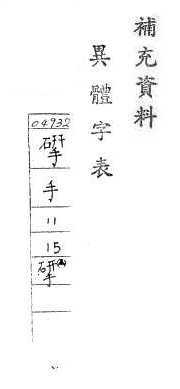 補充資料
異體字表
04932
手
11
15